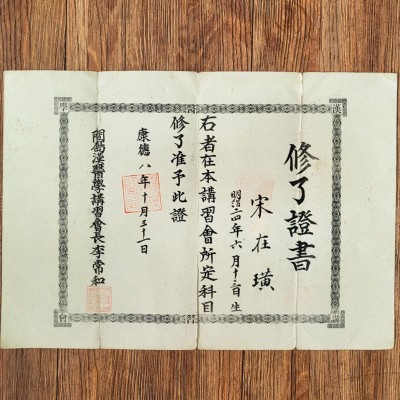 修了證書
宋在璜
明治二四年六月十二日生
右者在本講習會所定科目
修了准予此證
康德八年十月三十一日
漢醫學講習會長李常和